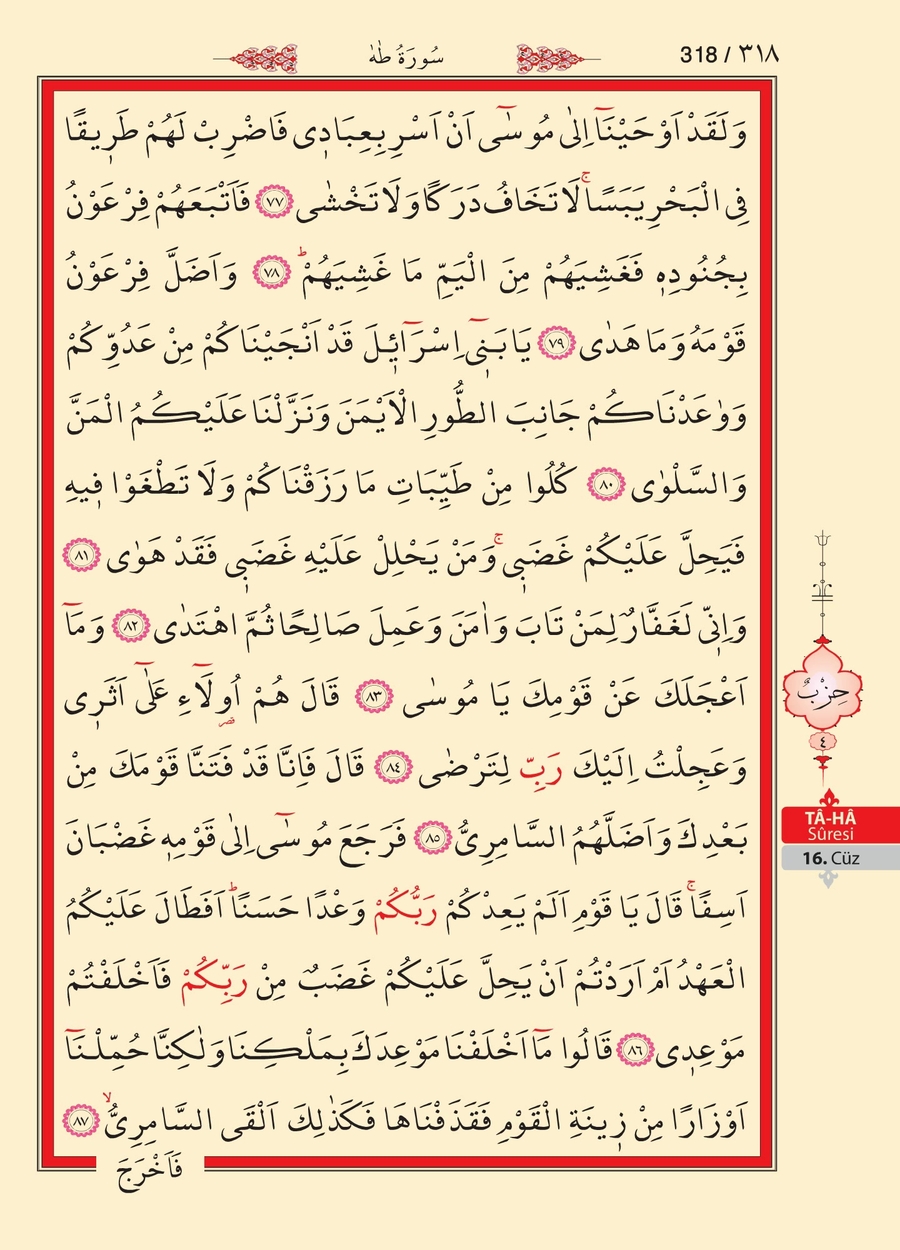 سُورَةُ طٰهٰ
318 / ٣١٨
وَلَقَدْ اَوْحَيْنَٓا اِلٰى مُوسٰٓى اَنْ اَسْرِ بِعِبَادٖى فَاضْرِبْ لَهُمْ طَرٖيقًا
فِى الْبَحْرِ يَبَسًاۚ لَا تَخَافُ دَرَكًا وَلَا تَخْشٰى ﴿٧٧﴾ فَاَتْبَعَهُمْ فِرْعَوْنُ
بِجُنُودِهٖ فَغَشِيَهُمْ مِنَ الْيَمِّ مَا غَشِيَهُمْؕ ﴿٧٨﴾ وَاَضَلَّ فِرْعَوْنُ
قَوْمَهُ وَمَا هَدٰى ﴿٧٩﴾ يَا بَنٖٓى اِسْرَٓائٖلَ قَدْ اَنْجَيْنَاكُمْ مِنْ عَدُوِّكُمْ
وَوٰعَدْنَاكُمْ جَانِبَ الطُّورِ الْاَيْمَنَ وَنَزَّلْنَا عَلَيْكُمُ الْمَنَّ
وَالسَّلْوٰى ﴿٨٠﴾ كُلُوا مِنْ طَيِّبَاتِ مَا رَزَقْنَاكُمْ وَلَا تَطْغَوْا فٖيهِ
فَيَحِلَّ عَلَيْكُمْ غَضَبٖىۚ وَمَنْ يَحْلِلْ عَلَيْهِ غَضَبٖى فَقَدْ هَوٰى ﴿٨١﴾
وَاِنّٖى لَغَفَّارٌ لِمَنْ تَابَ وَاٰمَنَ وَعَمِلَ صَالِحًا ثُمَّ اهْتَدٰى ﴿٨٢﴾ وَمَٓا
اَعْجَلَكَ عَنْ قَوْمِكَ يَا مُوسٰى ﴿٨٣﴾ قَالَ هُمْ اُولَٓاءِ عَلٰٓى اَثَرٖى
وَعَجِلْتُ اِلَيْكَ رَبِّ لِتَرْضٰى ﴿٨٤﴾ قَالَ فَاِنَّا قَدْ فَتَنَّا قَوْمَكَ مِنْ
بَعْدِكَ وَاَضَلَّهُمُ السَّامِرِىُّ ﴿٨٥﴾ فَرَجَعَ مُوسٰٓى اِلٰى قَوْمِهٖ غَضْبَانَ
اَسِفًاۚ قَالَ يَا قَوْمِ اَلَمْ يَعِدْكُمْ رَبُّكُمْ وَعْدًا حَسَنًاؕ اَفَطَالَ عَلَيْكُمُ
الْعَهْدُ اَمْ اَرَدْتُمْ اَنْ يَحِلَّ عَلَيْكُمْ غَضَبٌ مِنْ رَبِّكُمْ فَاَخْلَفْتُمْ
مَوْعِدٖى ﴿٨٦﴾ قَالُوا مَٓا اَخْلَفْنَا مَوْعِدَكَ بِمَلْكِنَا وَلٰكِنَّا حُمِّلْنَٓا
اَوْزَارًا مِنْ زٖينَةِ الْقَوْمِ فَقَذَفْنَاهَا فَكَذٰلِكَ اَلْقَى السَّامِرِىُّۙ ﴿٨٧﴾
فَاَخْرَجَ
حِزْبٌ
٤
TÂ-HÂ
Sûresi
16. Cüz